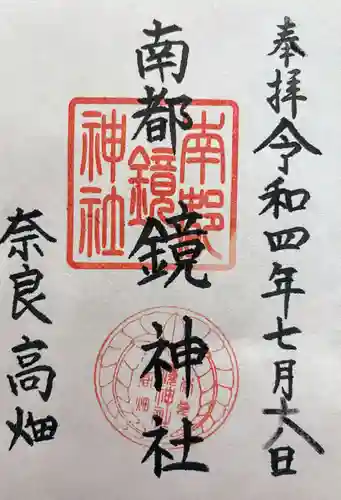 奉拝
令和四年七月六日
南都鏡神社
奈良高畑
南都
鏡
神社